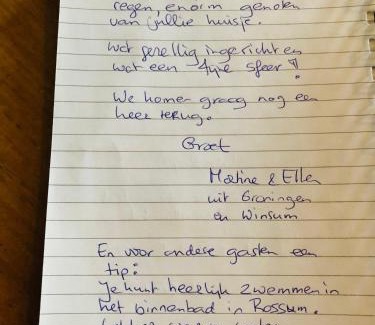 regen, enorm genoten
van jullie huisje.
Wat gezellig ingericht en
wat een fijne sfeer!
We komen graag nog een
keer terug.
Groet
Martine & Ellen
uit Groningen
en Winsum
En voor andere gasten een
tip:
Je kunt heerlijk zwemmen in
het binnenbad in Rossum.